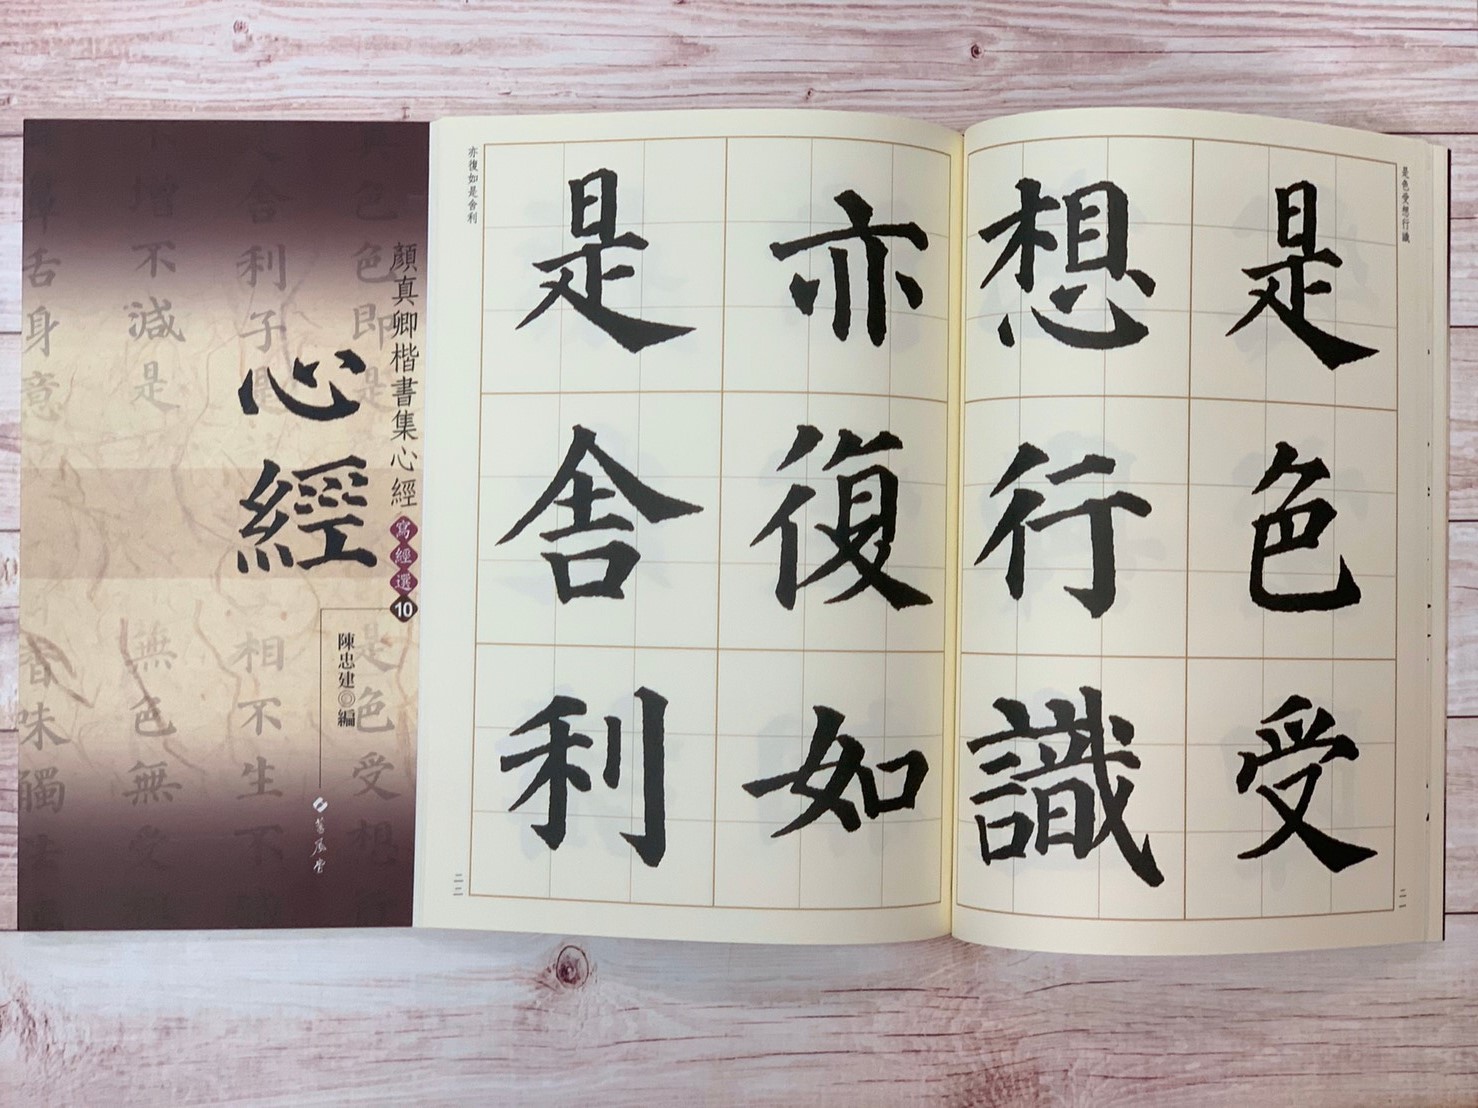 顏真卿楷書集心經
寫經選10
心經
陳忠建◎編
蕙風堂
色即是
是色受想
舍利子是
相不生不
增不減是
無色無受
舌身意
香味觸法
是色受想行識
是色受
想行識
二一
亦復如是舍利
亦復如
是舍利
二二